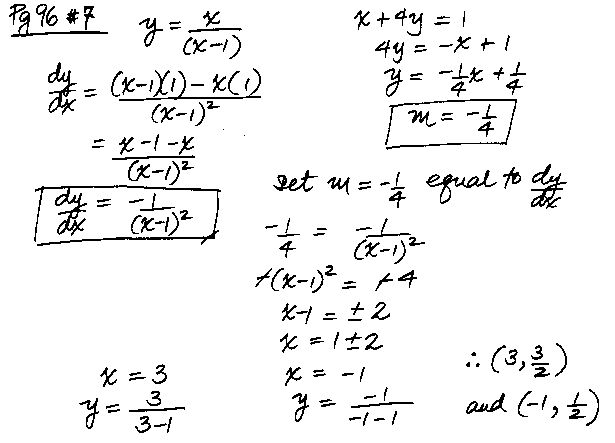 Pg 96 #7
y = x/(x-1)
dy/dx = ((x-1)(1) - x(1))/(x-1)²
= (x-1-x)/(x-1)²
dy/dx = -1/(x-1)²
x + 4y = 1
4y = -x + 1
y = -1/4 x + 1/4
m = -1/4
set m = -1/4 equal to dy/dx
-1/4 = -1/(x-1)²
-(x-1)² = -4
x-1 = ±2
x = 1 ± 2
x = 3
y = 3/(3-1)
x = -1
y = -1/(-1-1)
∴ (3, 3/2)
and (-1, 1/2)